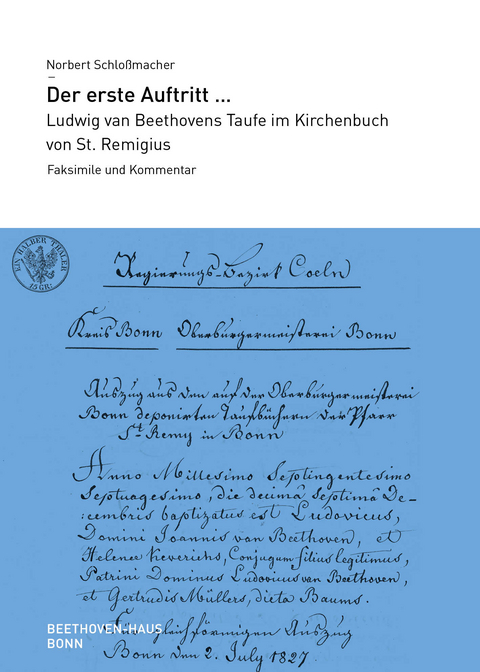 Norbert Schloßmacher
–
Der erste Auftritt ...
Ludwig van Beethovens Taufe im Kirchenbuch
von St. Remigius
Faksimile und Kommentar
EIN HALBER THALER
15 GR:
Regierungs-Bezirk Coeln
Kreis Bonn Oberburgermeisterei Bonn
Auszug aus den auf der Oberburgermeisterei
Bonn deponirten Taufbüchern der Pfarr
St. Remy in Bonn
Anno Millesimo Septingentesimo
Septuagesimo, die decimâ Septimâ De-
:cembris baptizatus est Ludovicus,
Domini Joannis van Beethoven, et
Helenae Keverichs, Conjugum filius legitimus,
Patrini Dominus Ludovicus van Beethoven,
et Gertrudis Müllers, dicta Baums.
gleichförmigen Auszug
BEETHOVEN-HAUS
BONN
Bonn den 2. July 1827